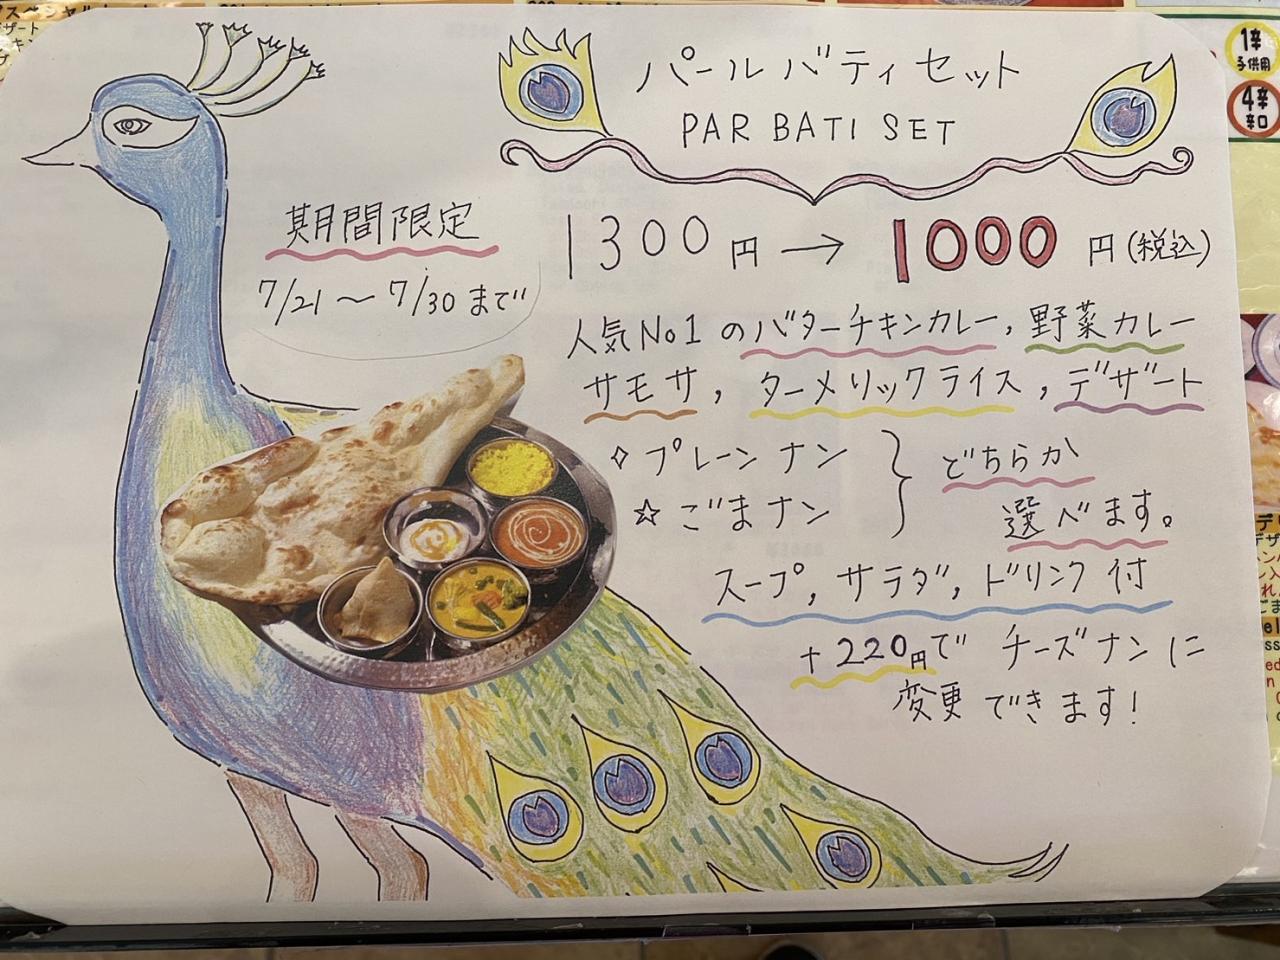 パールバティセット
PAR BATI SET
期間限定
7/21〜7/30まで
1300円→1000円(税込)
人気No1のバターチキンカレー,野菜カレー
サモサ,ターメリックライス,デザート
◇プレーンナン
☆ごまナン
どちらか
選べます。
スープ,サラダ,ドリンク付
+220円でチーズナンに
変更できます!
1辛
子供用
4辛
辛口